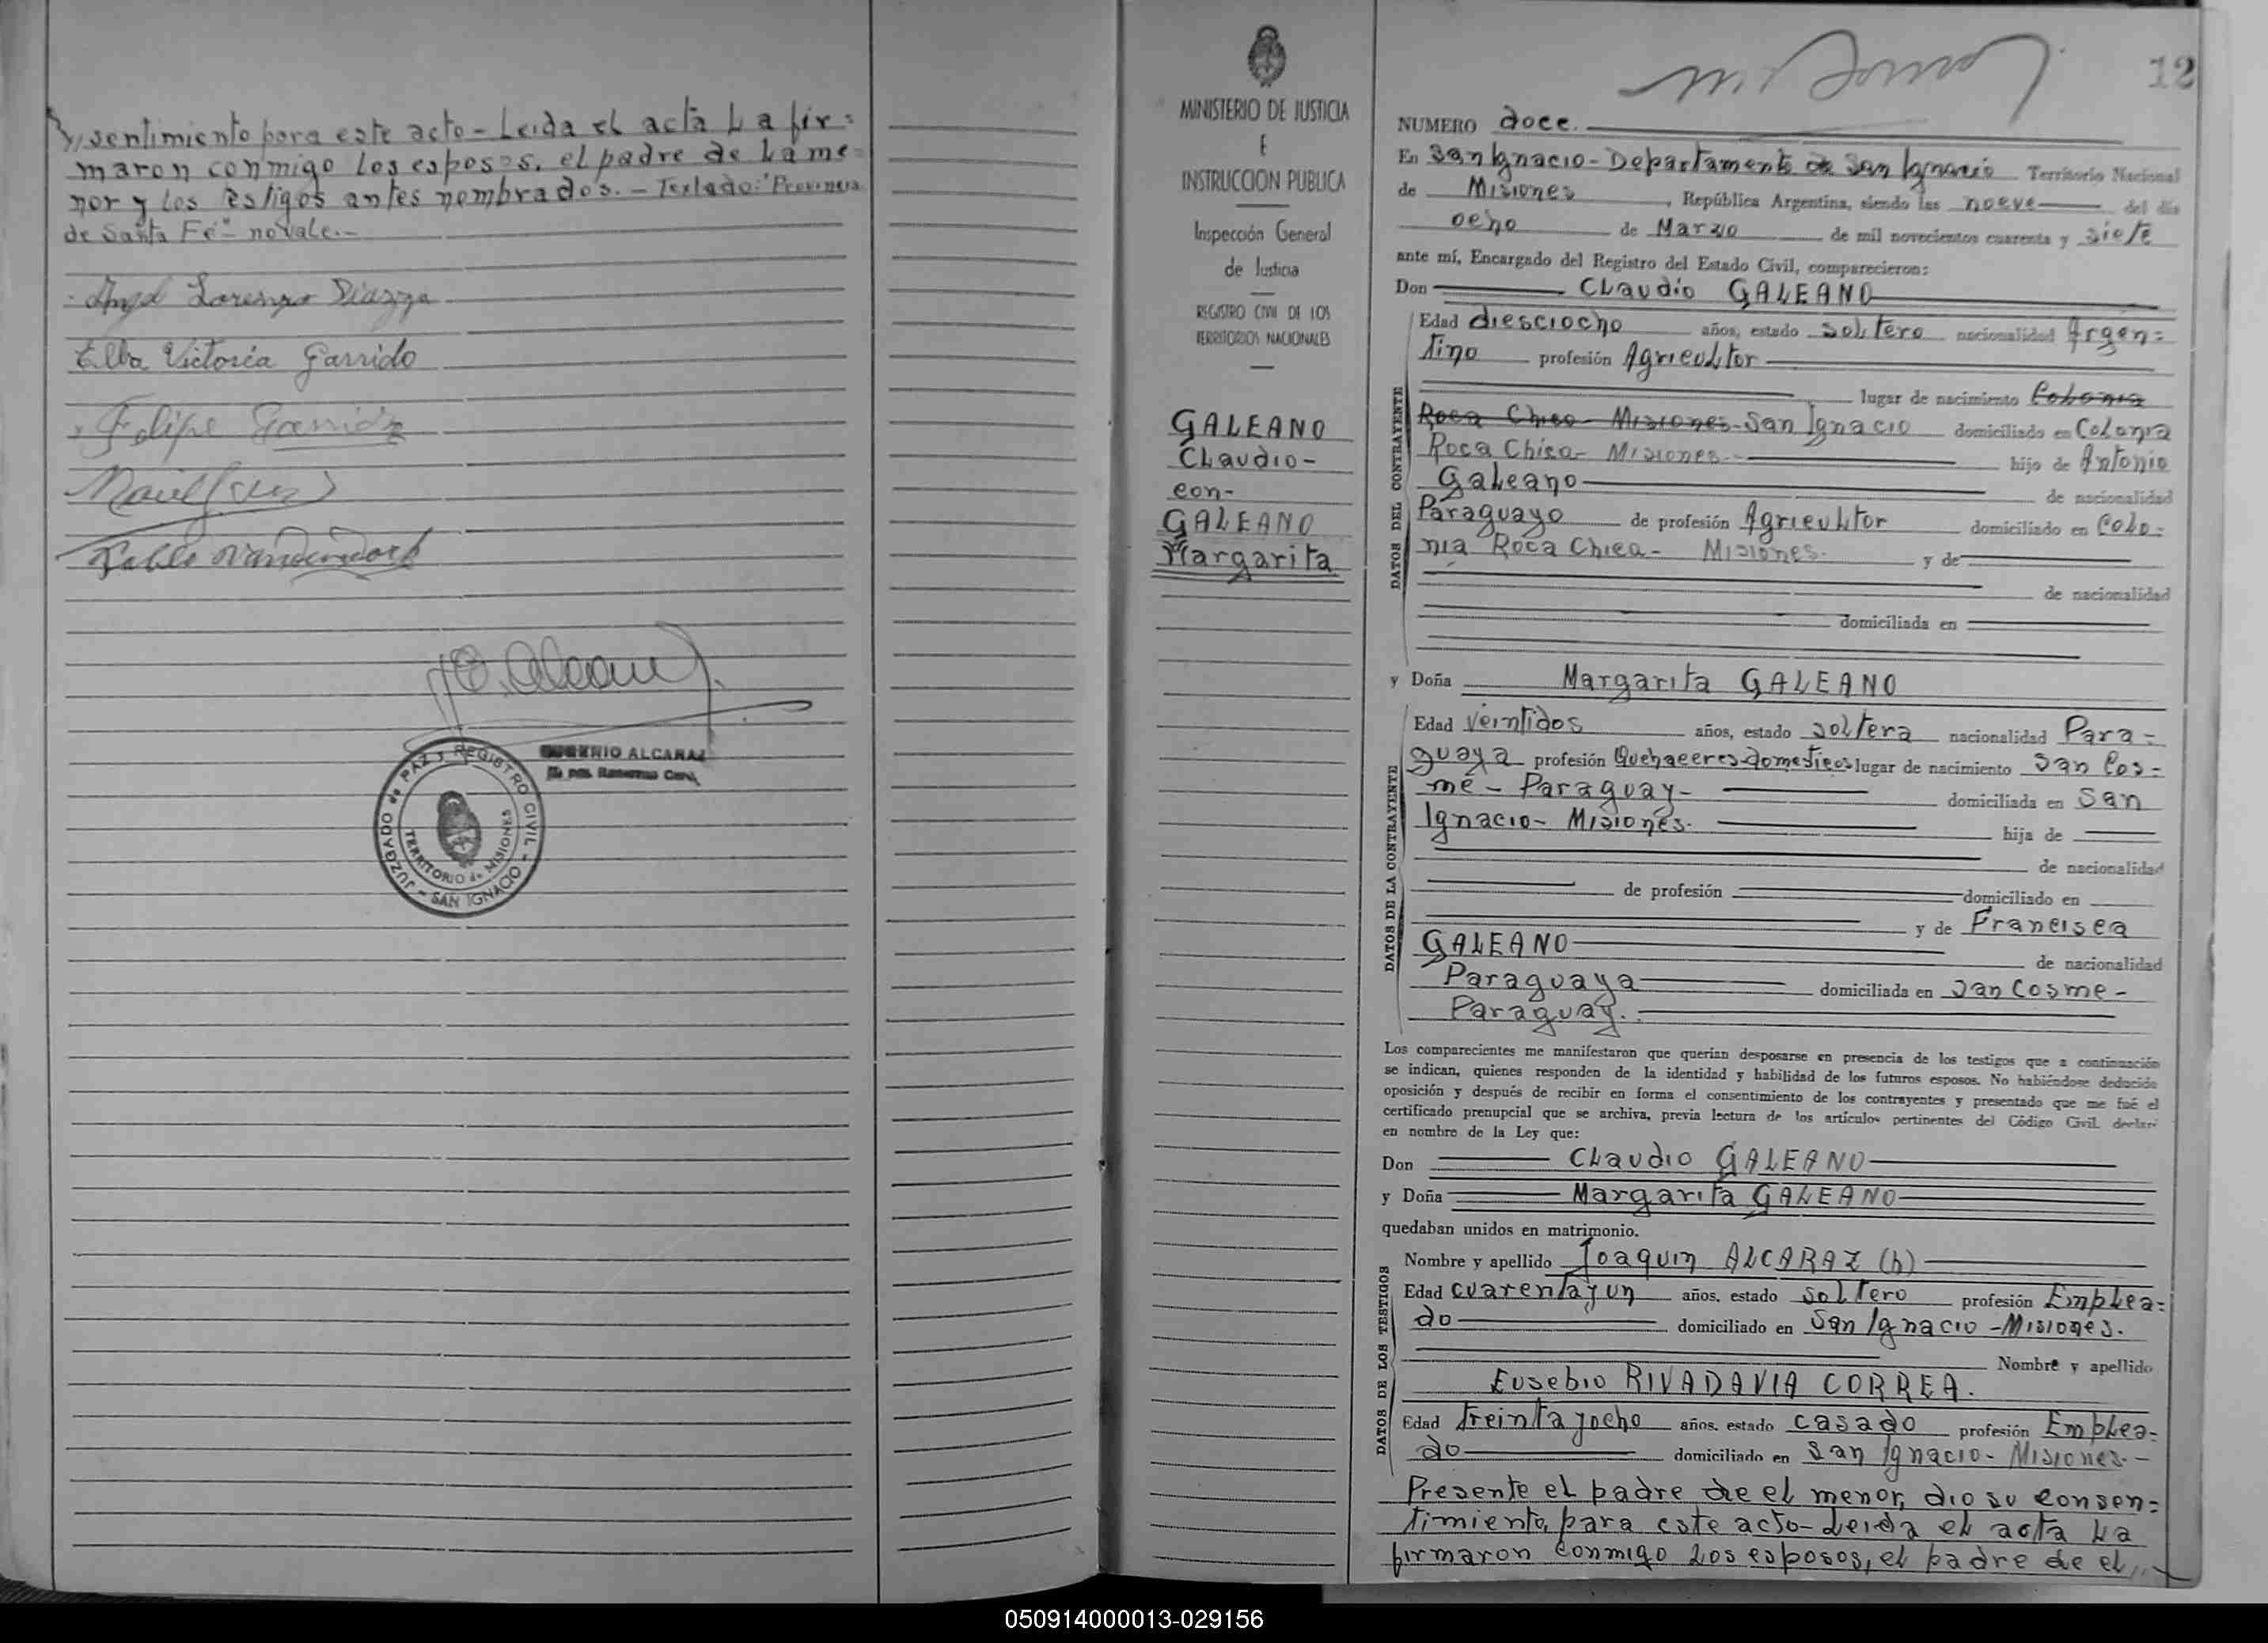 sentimiento para este acto - Leida el acta La fir=
maron conmigo los esposos, el padre de La me=
nor y Los testigos antes nombrados. - Testado: "Provincia
de Santa Fé" no vale. -
Angel Lorenzo
Elba Victoria Garrido
Felipe Garrido
EUGENIO ALCARAZ
JUZGADO de PAZ y REGISTRO CIVIL - SAN IGNACIO -
TERRITORIO de MISIONES
MINISTERIO DE JUSTICIA
E
INSTRUCCION PUBLICA
Inspección General
de Justicia
REGISTRO CIVIL DE LOS
TERRITORIOS NACIONALES
GALEANO
Claudio -
con -
GALEANO
Margarita
12
NUMERO doce.
En San Ignacio - Departamento de San Ignacio Territorio Nacional
de Misiones, República Argentina, siendo las nueve del día
ocho de Marzo de mil novecientos cuarenta y siete
ante mí, Encargado del Registro del Estado Civil, comparecieron:
Don Claudio GALEANO
DATOS DEL CONTRAYENTE
Edad diesciocho años, estado soltero nacionalidad Argen=
tino profesión Agricultor
lugar de nacimiento Colonia
Roca Chica - Misiones - San Ignacio domiciliado en Colonia
Roca Chica - Misiones - hijo de Antonio
Galeano de nacionalidad
Paraguayo de profesión Agricultor domiciliado en Colo=
nia Roca Chica - Misiones. y de
de nacionalidad
domiciliada en
y Doña Margarita GALEANO
DATOS DE LA CONTRAYENTE
Edad veintidos años, estado soltera nacionalidad Para=
guaya profesión Quehaceres domesticos lugar de nacimiento San Cos=
me - Paraguay - domiciliada en San
Ignacio - Misiones. hija de
de nacionalidad
de profesión domiciliado en
y de Francisca
GALEANO de nacionalidad
Paraguaya domiciliada en San Cosme -
Paraguay.
Los comparecientes me manifestaron que querían desposarse en presencia de los testigos que a continuación
se indican, quienes responden de la identidad y habilidad de los futuros esposos. No habiéndose deducido
oposición y después de recibir en forma el consentimiento de los contrayentes y presentado que me fué el
certificado prenupcial que se archiva, previa lectura de los artículos pertinentes del Código Civil, declaré
en nombre de la Ley que:
Don Claudio GALEANO
y Doña Margarita GALEANO
quedaban unidos en matrimonio.
DATOS DE LOS TESTIGOS
Nombre y apellido Joaquin ALCARAZ (h)
Edad cuarentayun años, estado soltero profesión Emplea=
do domiciliado en San Ignacio - Misiones.
Nombre y apellido
Eusebio RIVADAVIA CORREA.
Edad treintayocho años, estado casado profesión Emplea=
do domiciliado en San Ignacio - Misiones. -
Presente el padre de el menor, dio su consen=
timiento, para este acto - Leida el acta La
firmaron conmigo Los esposos, el padre de el
050914000013-029156